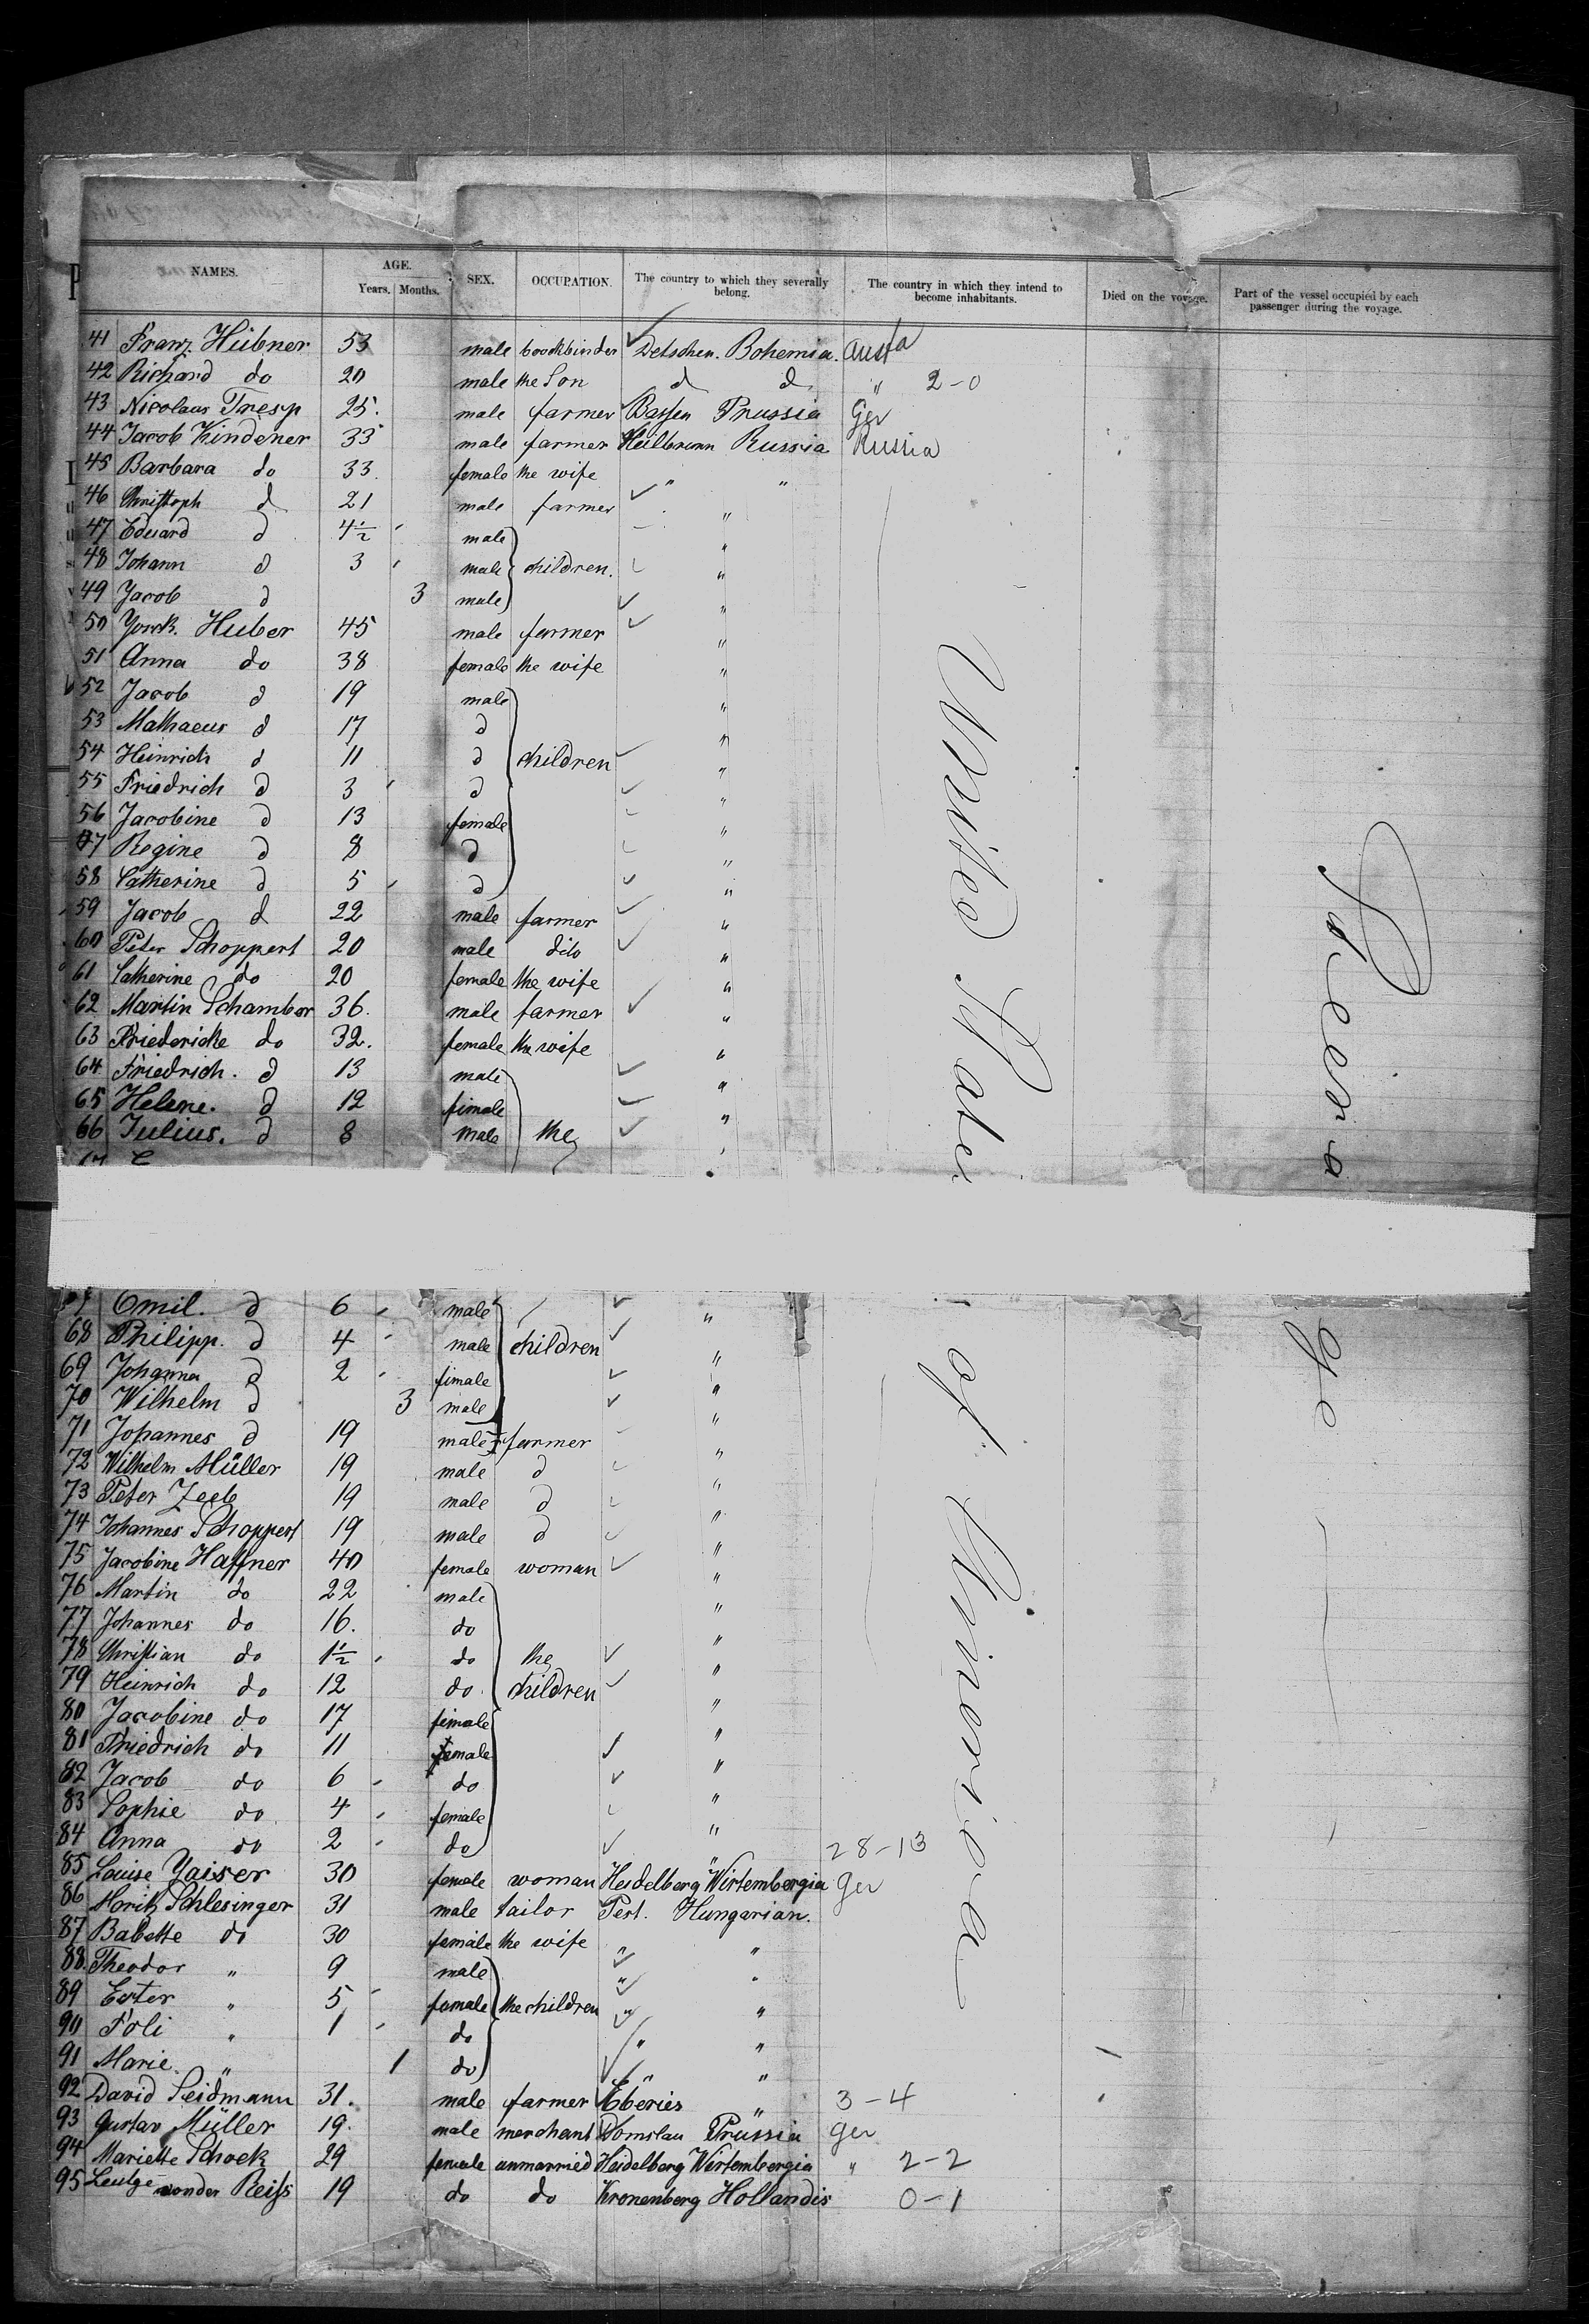 NAMES. AGE. Years. Months. SEX. OCCUPATION. The country to which they severally belong. The country in which they intend to become inhabitants. Died on the voyage. Part of the vessel occupied by each passenger during the voyage.
41 Franz Hübner 53 male bookbinder Detschen. Bohemia. Austa
42 Richard do 20 male the Son d d " 2-0
43 Nicolaus Tresp 25. male farmer Prussia Ger
44 Jacob Kindener 33 male farmer Heilbrunn Russia Russia
45 Barbara do 33. female the wife " "
46 Christoph d 21 male farmer "
47 Eduard d 4½ male "
48 Johann d 3 male children. "
49 Jacob d 3 male "
50 York. Huber 45 male farmer "
51 Anna do 38 female the wife "
52 Jacob d 19 male "
53 Mathaeus d 17 d "
54 Heinrich d 11 d children "
55 Friedrich d 3 d "
56 Jacobine d 13 female "
57 Regine d 8 d "
58 Catherine d 5 d "
59 Jacob d 22 male farmer "
60 Peter Schoppert 20 male dito "
61 Catherine do 20 female the wife "
62 Martin Schamber 36. male farmer "
63 Friedericke do 32. female the wife "
64 Friedrich. d 13 male "
65 Helene. d 12 fimale "
66 Julius. d 8 male the "
United States of America
Steerage
67 Emil. d 6 male "
68 Philipp. d 4 male children "
69 Johanna d 2 fimale "
70 Wilhelm d 3 male "
71 Johannes d 19 male farmer "
72 Wilhelm Müller 19 male d "
73 Peter Zeeb 19 male d "
74 Johannes Schoppert 19 male d "
75 Jacobine Haffner 40 female woman "
76 Martin do 22 male "
77 Johannes do 16. do "
78 Christian do 1½ do the "
79 Heinrich do 12 do children "
80 Jacobine do 17 fimale "
81 Friedrich do 11 female "
82 Jacob do 6 do "
83 Sophie do 4 female "
84 Anna do 2 do " 28-13
85 Louise Yaiser 30 female woman Heidelberg Wirtembergia Ger
86 Moritz Schlesinger 31 male tailor Pest. Hungarian.
87 Babette do 30 female the wife " "
88. Theodor " 9 male " "
89 Ester " 5 female the children " "
90 Foli " 1 do " "
91 Marie " 1 do " "
92 David Seidmann 31. male farmer Eberies " 3-4
93 Gustav Müller 19. male merchant Domslau Prussia Ger
94 Mariette Schock 29 female unmarried Heidelberg Wirtembergia " 2-2
95 vonder Reiss 19 do do Kronenberg Hollandis 0-1